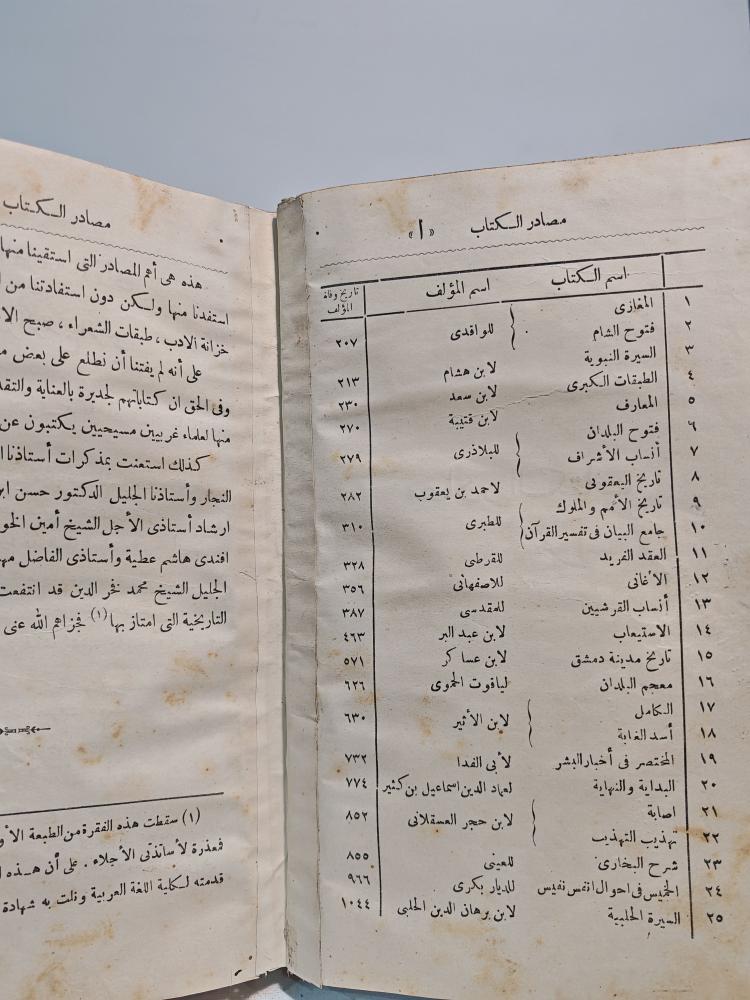 مصادر الكتاب «أ»
اسم الكتاب اسم المؤلف تاريخ وفاة المؤلف
١ المغازى
٢ فتوح الشام للواقدى ٢٠٧
٣ السيرة النبوية لابن هشام ٢١٣
٤ الطبقات الكبرى لابن سعد ٢٣٠
٥ المعارف لابن قتيبة ٢٧٠
٦ فتوح البلدان
٧ أنساب الأشراف للبلاذرى ٢٧٩
٨ تاريخ اليعقوبى لاحمد بن يعقوب ٢٨٢
٩ تاريخ الأمم والملوك
١٠ جامع البيان فى تفسير القرآن للطبرى ٣١٠
١١ العقد الفريد للقرطى ٣٢٨
١٢ الأغانى للاصفهانى ٣٥٦
١٣ أنساب القرشيين للمقدسى ٣٨٧
١٤ الاستيعاب لابن عبد البر ٤٦٣
١٥ تاريخ مدينة دمشق لابن عساكر ٥٧١
١٦ معجم البلدان لياقوت الحموى ٦٢٦
١٧ الكامل
١٨ أسد الغابة لابن الأثير ٦٣٠
١٩ المختصر فى أخبار البشر لأبى الفدا ٧٣٢
٢٠ البداية والنهاية لعماد الدين اسماعيل بن كثير ٧٧٤
٢١ اصابة
٢٢ تهذيب التهذيب لابن حجر العسقلانى ٨٥٢
٢٣ شرح البخارى للعينى ٨٥٥
٢٤ الخميس فى احوال انفس نفيس للديار بكرى ٩٦٦
٢٥ السيرة الحلبية لابن برهان الدين الحلبى ١٠٤٤
مصادر الكتاب
هذه هى أهم المصادر التى استقينا منها
استفدنا منها ولكن دون استفادتنا من
خزانة الادب ، طبقات الشعراء ، صبح
على أنه لم يفتنا أن نطلع على بعض
وفى الحق ان كتاباتهم لجديرة بالعناية
منها لعلماء غربيين مسيحيين يكتبون عن
كذلك استعنت بمذكرات أستاذنا
النجار وأستاذنا الجليل الدكتور حسن
ارشاد أستاذى الأجل الشيخ أمين
افندى هاشم عطية وأستاذى الفاضل
الجليل الشيخ محمد فخر الدين قد انتفعت
التاريخية التى امتاز بها (١) فجزاهم الله عنى
(١) سقطت هذه الفقرة من الطبعة
فمعذرة لأساتذتى الأجلاء . على أن هذه
قدمته لكلية اللغة العربية ونلت به شهادة